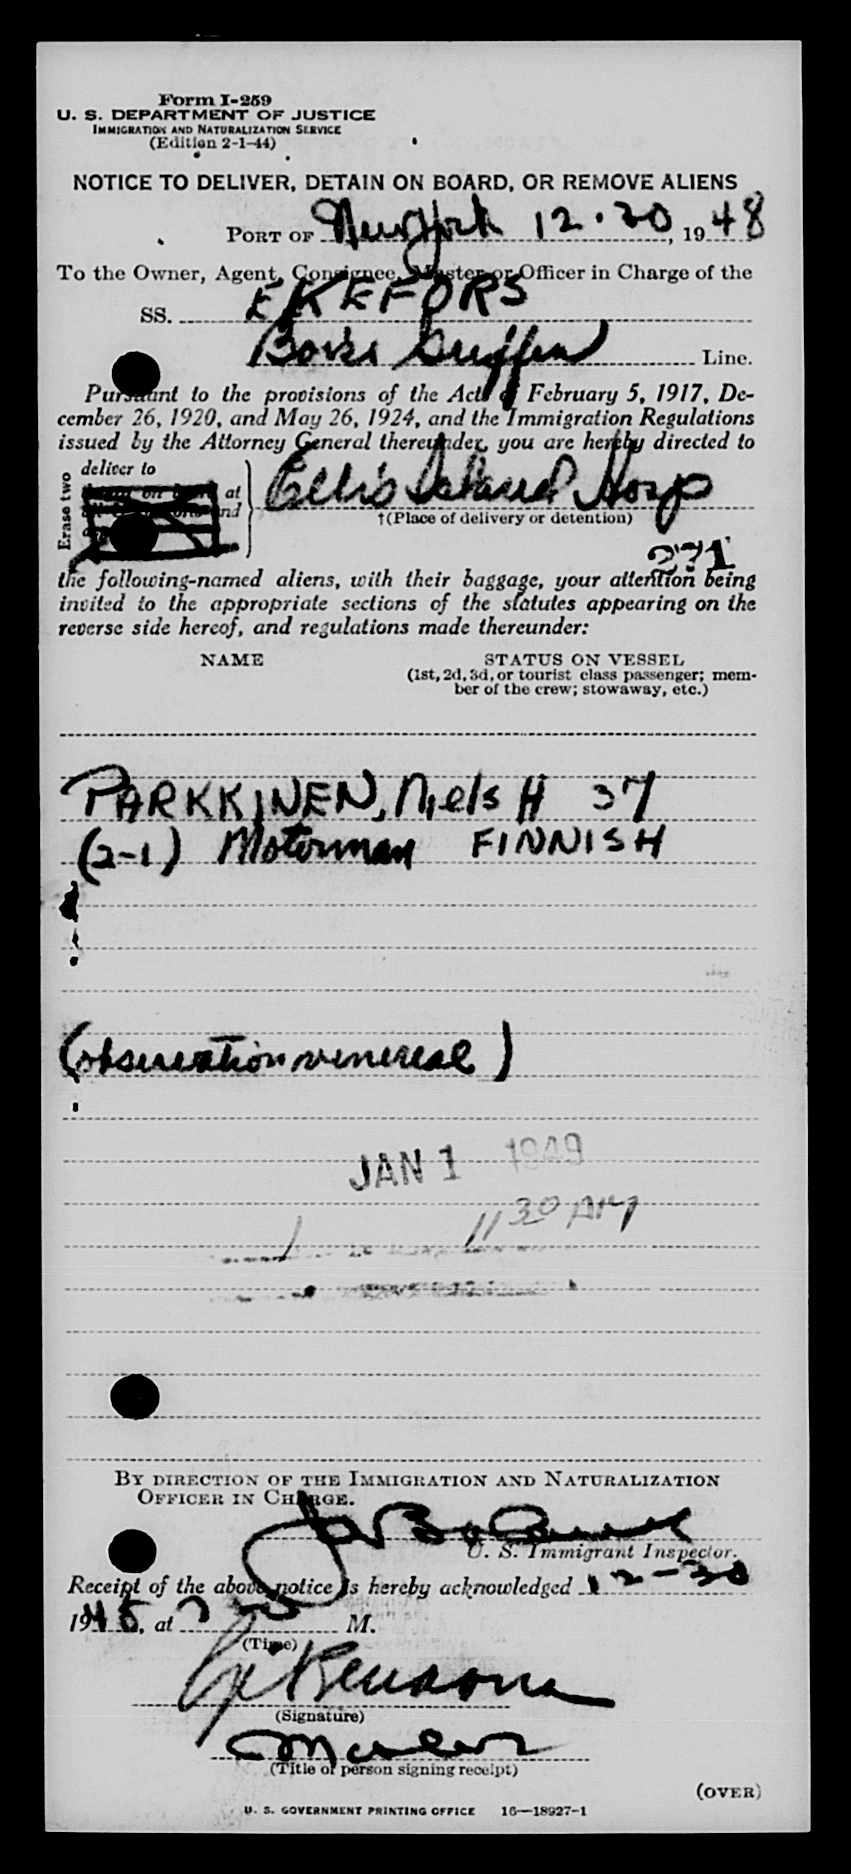 Form I-259
U. S. DEPARTMENT OF JUSTICE
IMMIGRATION AND NATURALIZATION SERVICE
(Edition 2-1-44)
NOTICE TO DELIVER, DETAIN ON BOARD, OR REMOVE ALIENS
PORT OF New York 12-30, 1948
To the Owner, Agent, Consignee, Master or Officer in Charge of the
SS. EKEFORS
Line.
Pursuant to the provisions of the Acts of February 5, 1917, De-
cember 26, 1920, and May 26, 1924, and the Immigration Regulations
issued by the Attorney General thereunder, you are hereby directed to
Erase two
deliver to
on board at
and
Ellis Island Hosp
†(Place of delivery or detention)
271
the following-named aliens, with their baggage, your attention being
invited to the appropriate sections of the statutes appearing on the
reverse side hereof, and regulations made thereunder:
NAME STATUS ON VESSEL
(1st, 2d, 3d, or tourist class passenger; mem-
ber of the crew; stowaway, etc.)
PARKKINEN, Niels H 37
(2-1) Motorman FINNISH
(observation venereal)
JAN 1 1949
11 30 AM
BY DIRECTION OF THE IMMIGRATION AND NATURALIZATION
OFFICER IN CHARGE.
U. S. Immigrant Inspector.
Receipt of the above notice is hereby acknowledged 12-30
1948, at M.
(Time)
(Signature)
Master
(Title of person signing receipt)
(OVER)
U. S. GOVERNMENT PRINTING OFFICE 16—18927-1